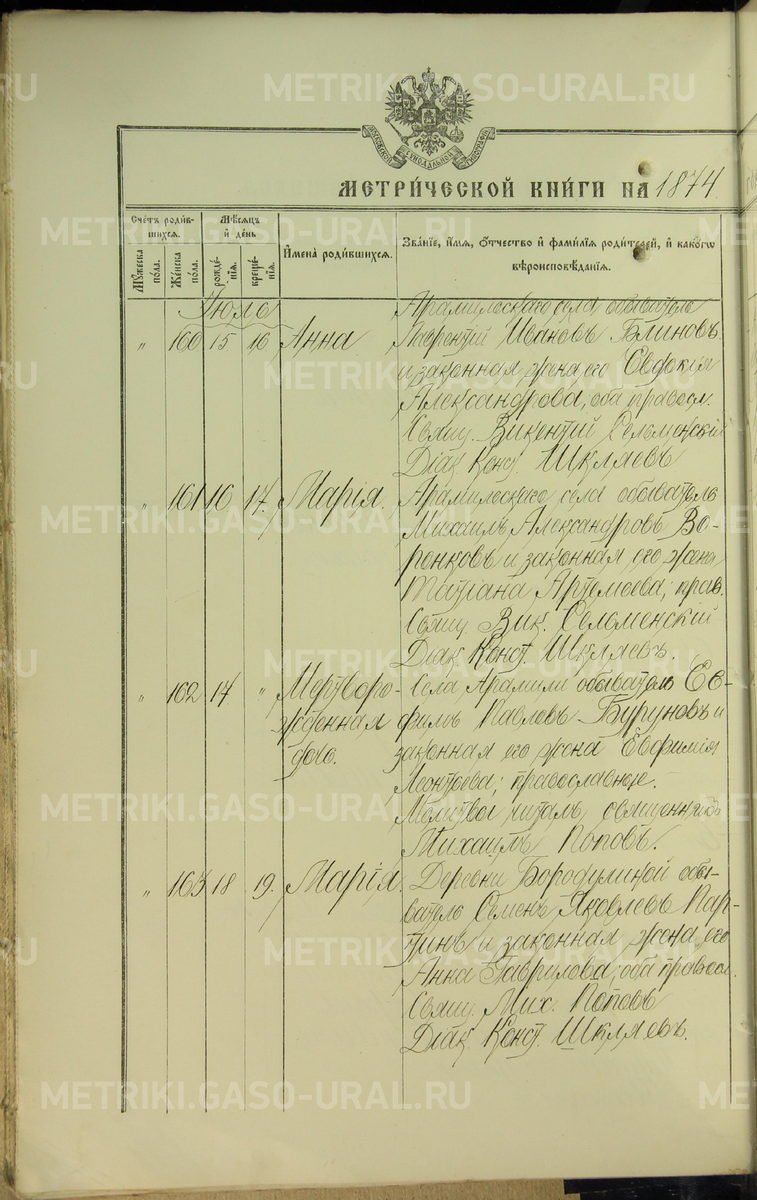 МОСКОВСКОЙ СѴНОДАЛЬНОЙ ТИПОГРАФІИ
МЕТРИ́ЧЕСКОЙ КНИ́ГИ НА 1874
Сче́тъ роди́в-
шихся.
М́ѣсяцъ
и҆ де́нь
Мꙋ́жеска по́ла.
Же́нска по́ла.
рожде́нїѧ.
креще́нїѧ.
И҆мена̀ роди́вшихсѧ.
Зва́нїе, и҆́мѧ, ѻ҆́тчество и҆ фами́лїѧ роди́телей, и҆ како́гѡ
вѣроисповѣ́данїѧ.
Іюль
Арамильскаго села обыватель
" 160 15 16 Анна Лаврентій Ивановъ Блиновъ
и законная жена его Евдокія
Александрова, оба правосл.
Свящ. Викентій Селоменскій
Діак. Конст. Шкляевъ
" 161 16 17. Марія. Арамильскаго села обыватель
Михаилъ Александровъ Во-
ронковъ и законная его жена
Татіана Артемьева; прав.
Свящ. Вик. Селоменскій
Діак. Конст. Шкляевъ.
" 162 17 " Мертворо- Села Арамили обыватель Ев-
жденная фимъ Павловъ Буруновъ и
дочь. законная его жена Евфимія
Леонтьева; православные.
Молитвы читалъ священникъ
Михаилъ Поповъ.
" 163 18 19. Марія. Деревни Бородулиной обы-
ватель Семенъ Яковлевъ Пар-
тинъ и законная жена его
Анна Гаврилова; оба правосл.
Свящ. Мих. Поповъ
Діак. Конст. Шкляевъ.
METRIKI.GASO-URAL.RU